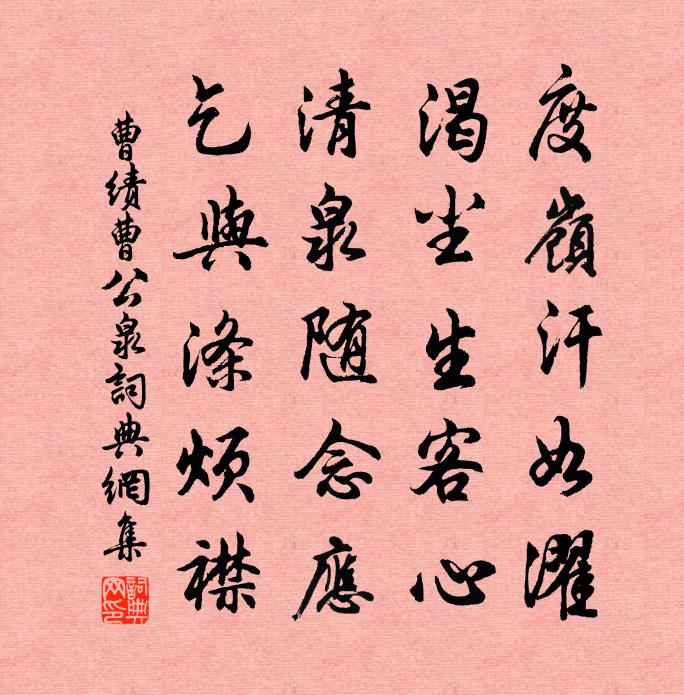 度嶺汗如濯
渴尘生客心
清泉随念應
乞與滌煩襟
曹績曹公泉詞典網集
詞典网印